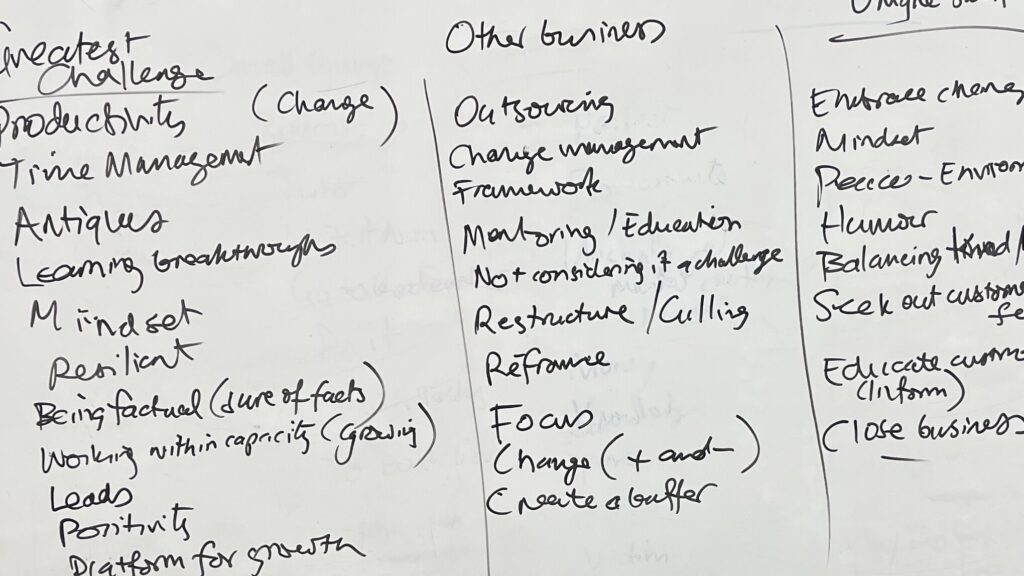 Greatest
Challenge
Productivity (Change)
Time Management
Antiques
Learning breakthroughs
Mindset
Resilient
Being factual (sure of facts)
Working within capacity (growing)
Leads
Positivity
Platform for growth
Other business
Outsourcing
Change management
Framework
Mentoring / Education
Not considering it a challenge
Restructure / Culling
Reframe
Focus
Change (+ and -)
Create a buffer
Embrace change
Mindset
Humour
Balancing
Seek out custome
fe
Educate custome
(Inform)
Close business